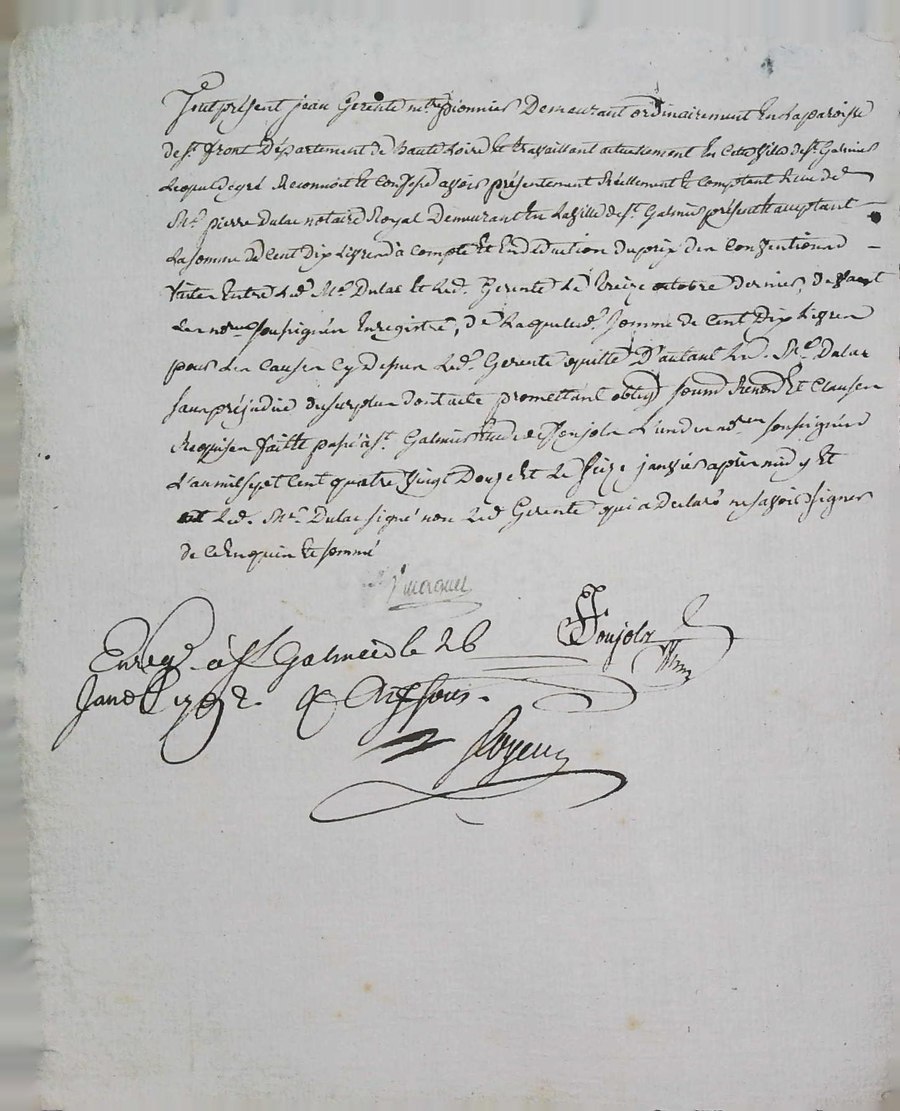 Fut présent jean Gerente me pionnier Demeurant ordinairement En La paroisse
de st. front Département de haute Loire et travaillant actuellement En Cette ville de st. Galmier
Lequel de gré Reconnoit et Confesse avoir présentement Réellement et Comptant Reçu de
Me. pierre Dulac notaire Royal Demeurant En La ville de st. Galmier présent et acceptant
La somme de Cent Dix Livres à Compte et En déduction du prix des Conventions
faites Entre Led. Me. Dulac Et Led. Gerente Le treize octobre dernier, devant
Les nores soussignés Enregistré, de Laquelle d. somme de Cent Dix Livres
pour Les Causes Cy dessus Led. Gerente quitte D'autant Led. Me. Dulac
sans préjudice du surplus dont acte promettant oblig. soum. Renon. Et Clauses
Requises fait et passé à st. Galmier Etude de Joujols L'un des nores soussignés
L'an mil sept Cent quatre vingt Douze Et Le seize janvier après midy Et
Led. Me. Dulac signé non Led Gerente qui a Declaré ne savoir signer
de Ce Enquis Et sommé
Enregé. à st Galmier le 26 Joujols
1792. quinze sous.